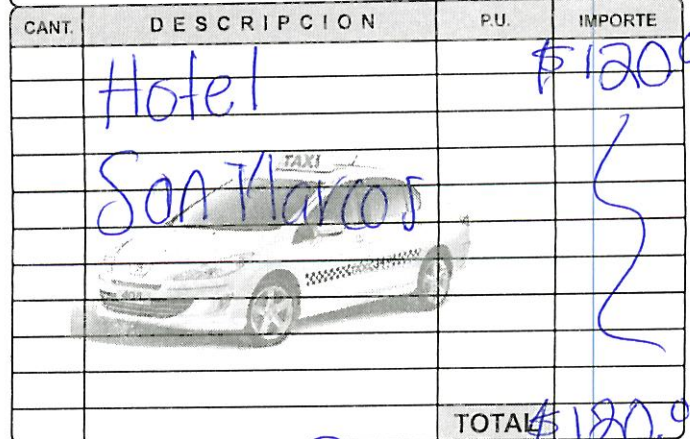 CANT. DESCRIPCION P.U. IMPORTE
Hotel $120.0
San Marcos
TAXI
TOTAL $120.0